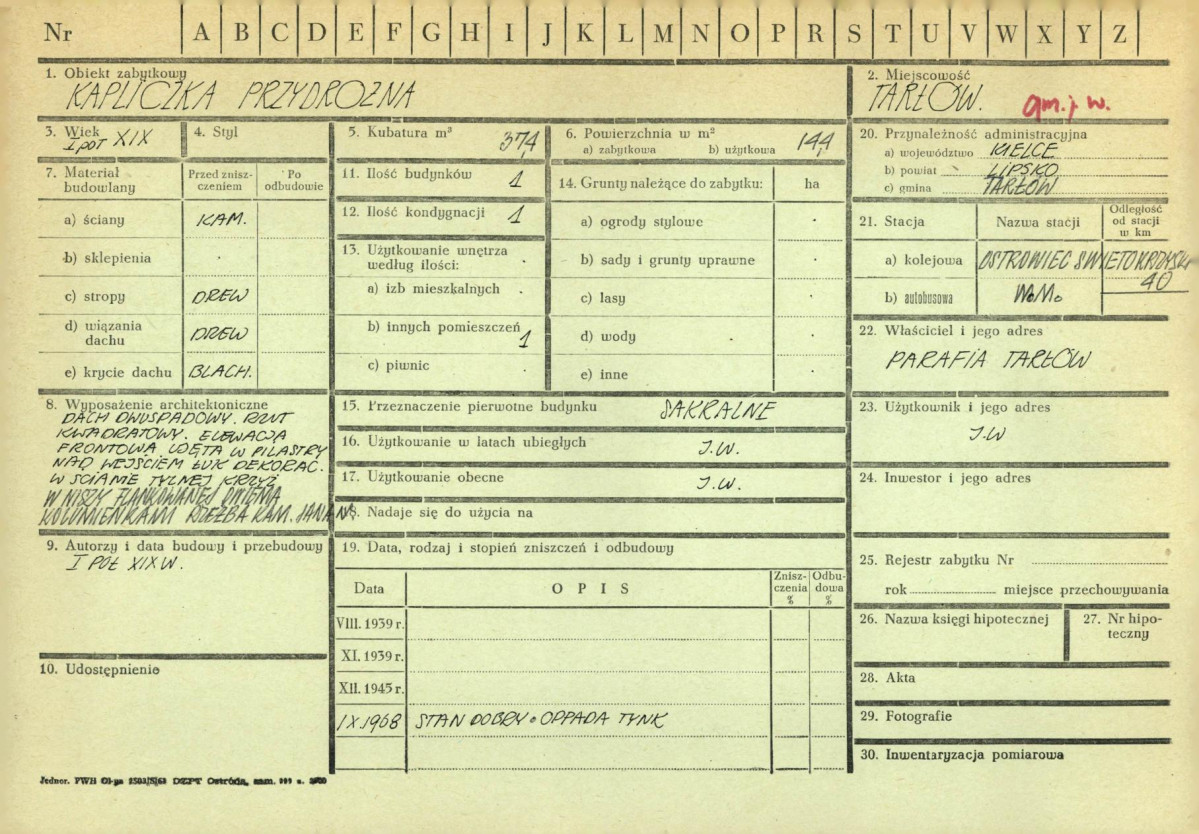 Nr A B C D E F G H I J K L M N O P R S T U V W X Y Z
1. Obiekt zabytkowy
KAPLICZKA PRZYDROŻNA
2. Miejscowość
TARŁÓW.
gm. j w.
3. Wiek
I poł XIX
4. Styl
5. Kubatura m³
37,4
6. Powierzchnia w m²
a) zabytkowa b) użytkowa
14,4
20. Przynależność administracyjna
a) województwo KIELCE
b) powiat LIPSKO
c) gmina TARŁÓW
7. Materiał budowlany
Przed zniszczeniem
Po odbudowie
a) ściany KAM.
b) sklepienia
c) stropy DREW
d) wiązania dachu DREW
e) krycie dachu BLACH.
11. Ilość budynków 1
12. Ilość kondygnacji 1
13. Użytkowanie wnętrza
według ilości:
a) izb mieszkalnych
b) innych pomieszczeń 1
c) piwnic
14. Grunty należące do zabytku: ha
a) ogrody stylowe
b) sady i grunty uprawne
c) lasy
d) wody
e) inne
21. Stacja Nazwa stacji Odległość od stacji w km
a) kolejowa OSTROWIEC ŚWIĘTOKRZYSKI
40
b) autobusowa W.M.
22. Właściciel i jego adres
PARAFIA TARŁÓW
8. Wyposażenie architektoniczne
DACH DWUSPADOWY. RZUT
KWADRATOWY. ELEWACJA
FRONTOWA UJĘTA W PILASTRY
NAD WEJŚCIEM ŁUK DEKORAC.
W ŚCIANIE TYLNEJ KRZYŻ
W NISZY FLANKOWANEJ DWIEMA
KOLUMIENKAMI RZEŹBA KAM. JANA N.
15. Przeznaczenie pierwotne budynku SAKRALNE
16. Użytkowanie w latach ubiegłych J.W.
17. Użytkowanie obecne J.W.
18. Nadaje się do użycia na
23. Użytkownik i jego adres
J.W
24. Inwestor i jego adres
9. Autorzy i data budowy i przebudowy
I PÓŁ XIX W.
19. Data, rodzaj i stopień zniszczeń i odbudowy
Data OPIS Zniszczenia % Odbudowa %
VIII. 1939 r.
XI. 1939 r.
XII. 1945 r.
IX.1968 STAN DOBRY. OPPADA TYNK
25. Rejestr zabytku Nr
rok miejsce przechowywania
26. Nazwa księgi hipotecznej
27. Nr hipoteczny
10. Udostępnienie
28. Akta
29. Fotografie
30. Inwentaryzacja pomiarowa
Jednor. PWH DZPT Ostróda, zam.